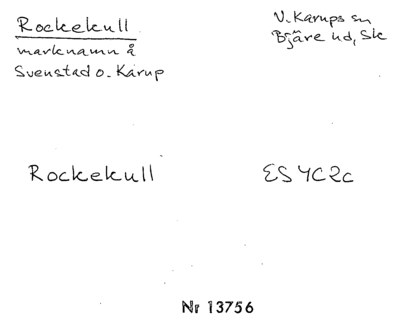 Rockekull
marknamn å
Svenstad o. Karup
V. Karups sn
Bjäre hd, Sk
Rockekull
ES 4C2c
Nr 13756